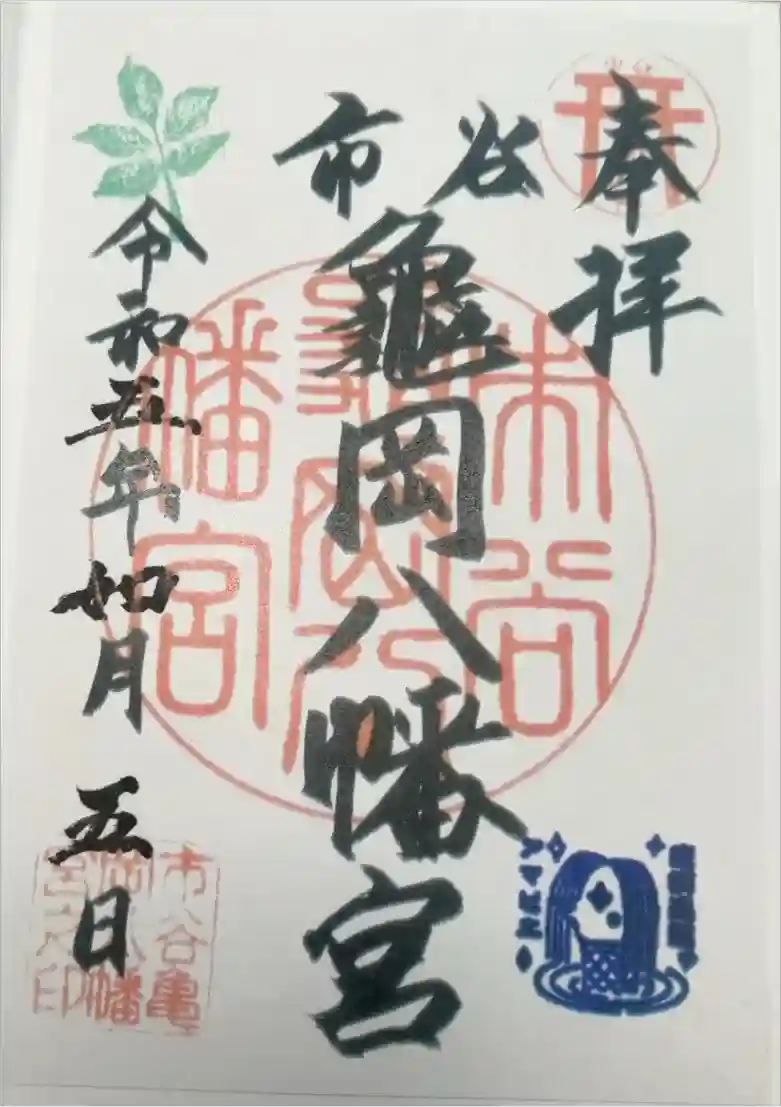 奉拝
市谷
亀岡八幡宮
令和五年如月五日
市谷
亀岡八
幡宮
市谷亀
岡八幡
宮之印
アマビエ